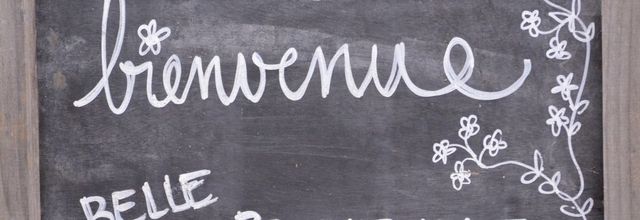 bienvenue
BELLE